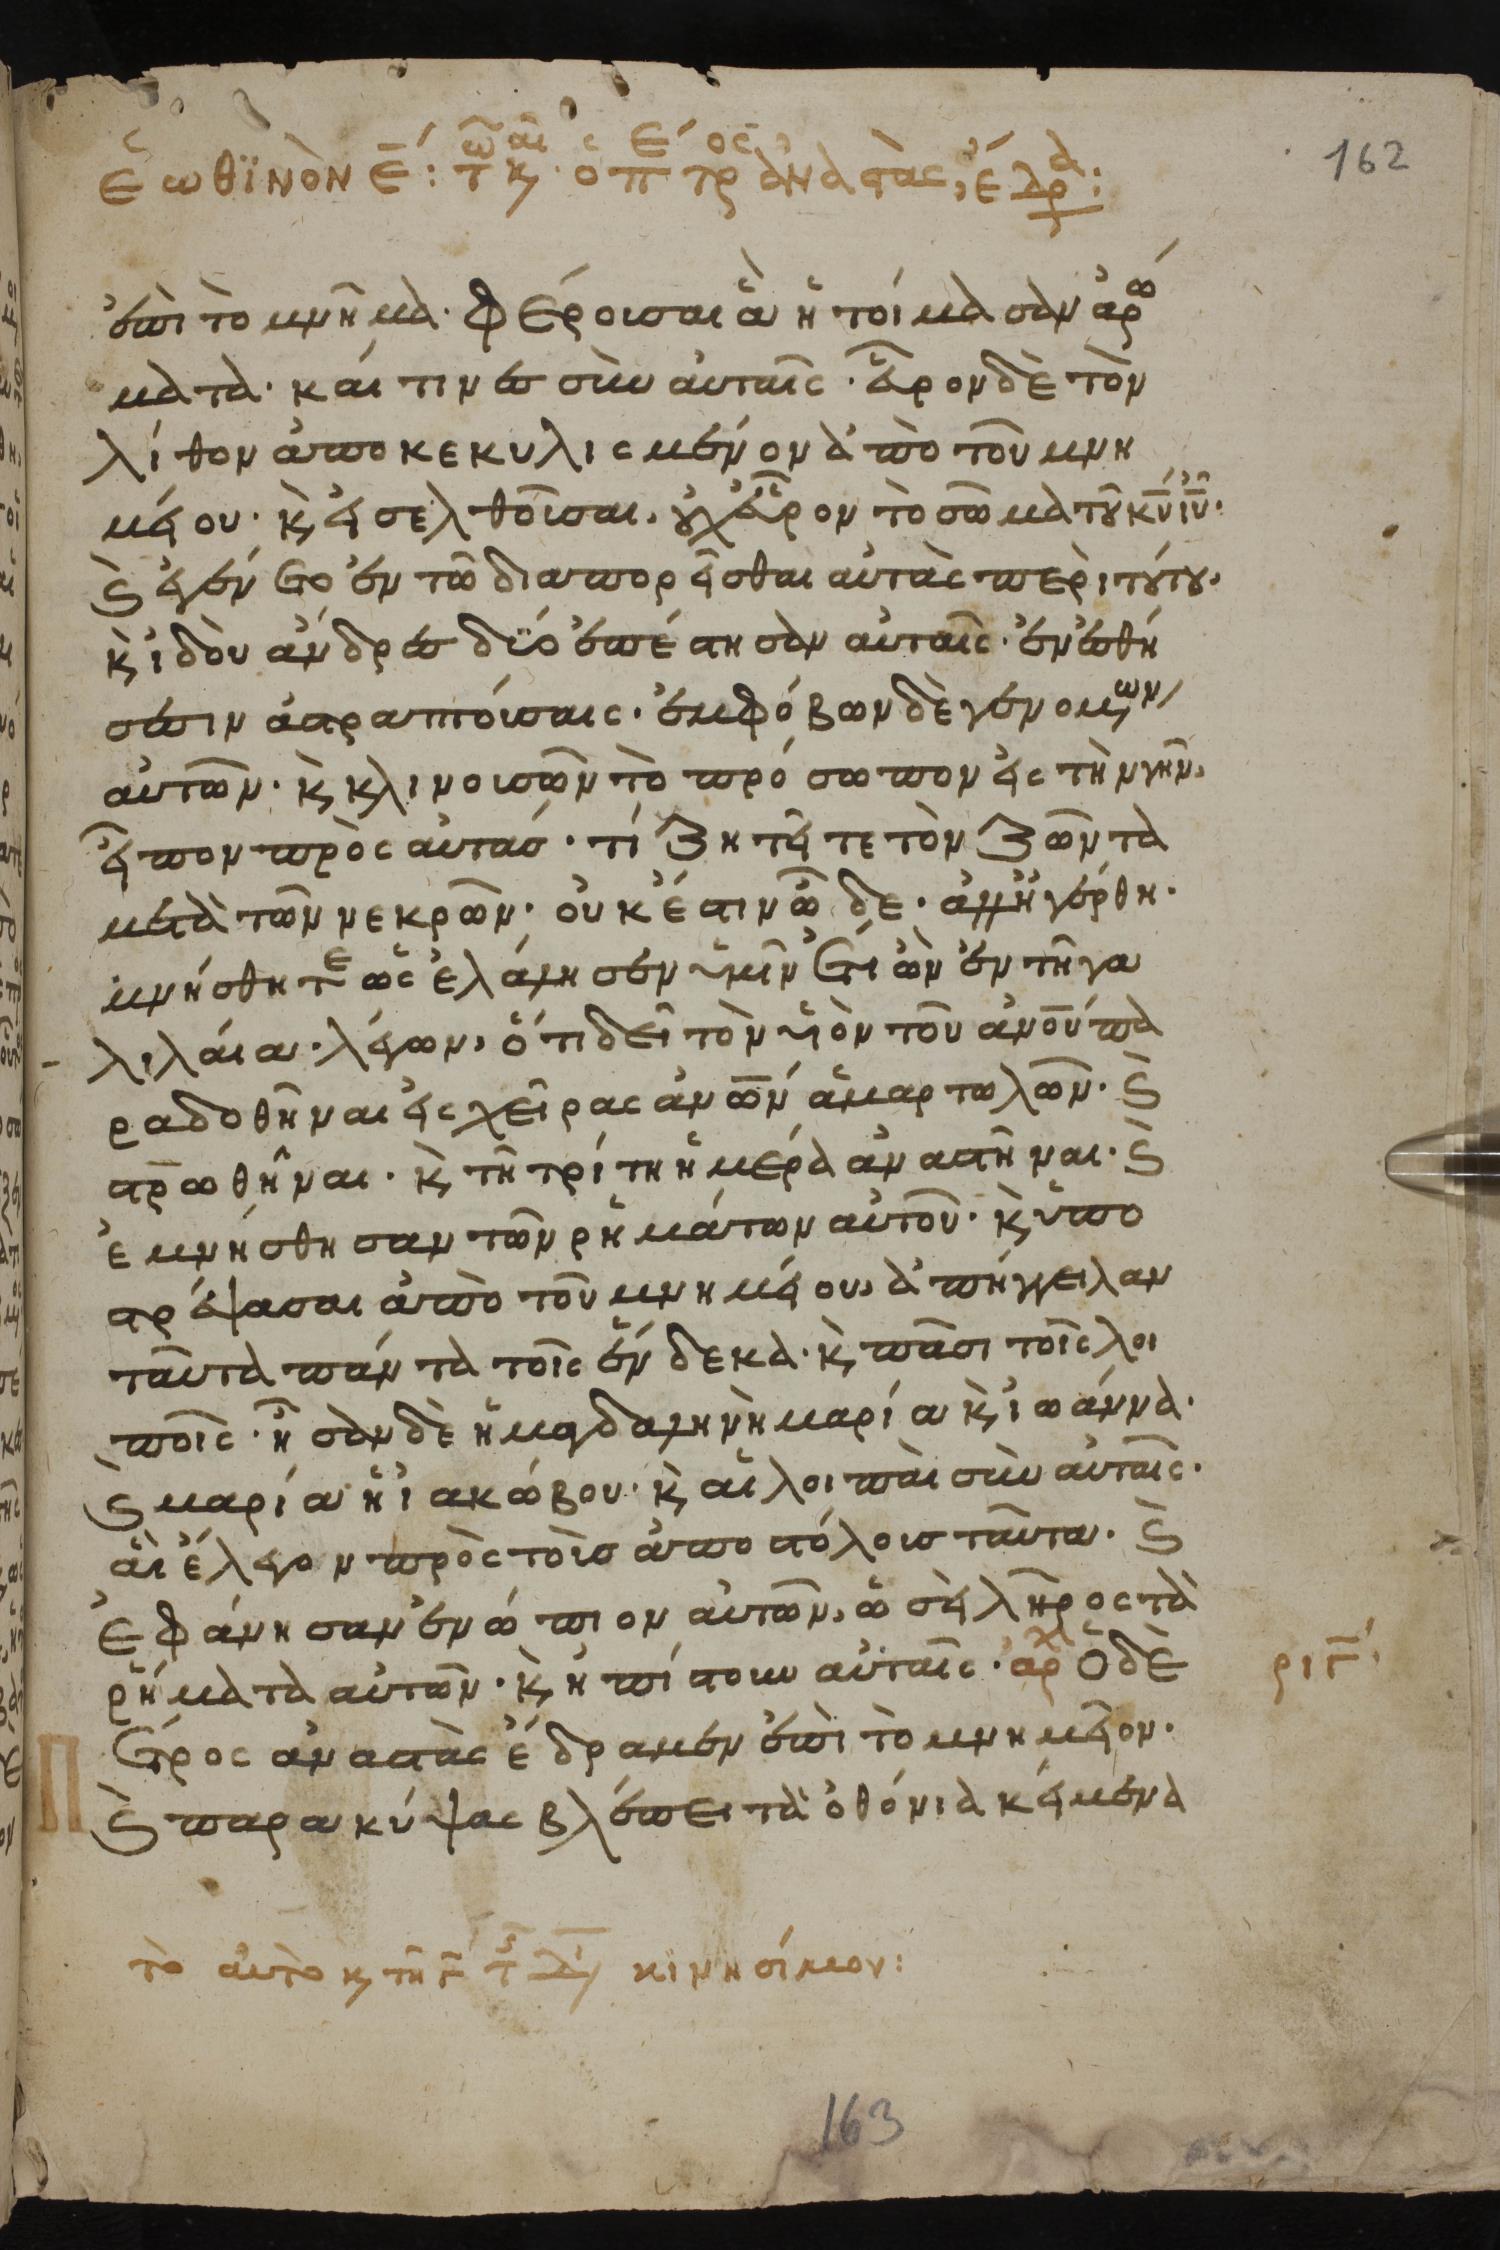 162
ἑωθϊνὸν ε̄:
ἐπὶ τὸ μνῆμα· φέρουσαι ἃ ἡτοίμασαν ἀρώ
ματα· καί τινες σὺν αὐταῖς· εὗρον δὲ τὸν
λίθον ἀποκεκυλισμένον ἀπὸ τοῦ μνη
μείου· κ̀ εἰσελθοῦσαι, οὐχ εὗρον τὸ σῶμα τοῦ κ̅υ̅ ι̅υ̅·
κ̀ ἐγένετο ἐν τῶ διαπορεῖσθαι αὐτὰς περὶ τούτου·
κ̀ ἰδοὺ ἄνδρες δύο ἐπέστησαν αὐταῖς· ἐν ἐσθή
σεσιν ἀστραπτούσαις· ἐμφόβων δὲ γενομένων
αὐτῶν· κ̀ κλινουσῶν τὸ πρόσωπον εἰς τὴν γῆν,
εἶπον πρὸς αὐτάς· τί ζητεῖτε τὸν ζῶντα
μετὰ τῶν νεκρῶν· οὐκ ἔστιν ὧδε· ἀλλ' ἠγέρθη·
μνήσθητε ὡς ἐλάλησεν ὑμῖν ἔτι ὢν ἐν τῆ γα
λιλαία· λέγων, ὅτι δεῖ τὸν υἱὸν τοῦ α̅ν̅ο̅υ̅ πα
ραδοθῆναι εἰς χεῖρας α̅ν̅ω̅ν̅ ἁμαρτωλῶν· κ̀
στρωθῆναι· κ̀ τῆ τρίτη ἡμέρα ἀναστῆναι· κ̀
ἐμνήσθησαν τῶν ῥημάτων αὐτοῦ· κ̀ ὑπο
στρέψασαι ἀπὸ τοῦ μνημείου, ἀπήγγειλαν
ταῦτα πάντα τοῖς ἕνδεκα· κ̀ πᾶσι τοῖς λοι
ποῖς· ἦσαν δὲ ἡ μαγδαληνὴ μαρία κ̀ ἰωάννα·
κ̀ μαρία ἡ ἰακώβου· κ̀ αἱ λοιπαὶ σὺν αὐταῖς·
αἳ ἔλεγον πρὸς τοὺς ἀποστόλους ταῦτα· κ̀
ἐφάνησαν ἐνώπιον αὐτῶν, ὡσεὶ λῆρος τὰ
ῥήματα αὐτῶν· κ̀ ἠπίστουν αὐταῖς· ἀρχ ὁ δὲ
ριγ̄
Πέτρος ἀναστὰς ἔδραμεν ἐπὶ τὸ μνημεῖον·
κ̀ παρακύψας βλέπει τὰ ὀθόνια κείμενα
τὸ αὐτὸ κ̀ τῆ γ̄
163